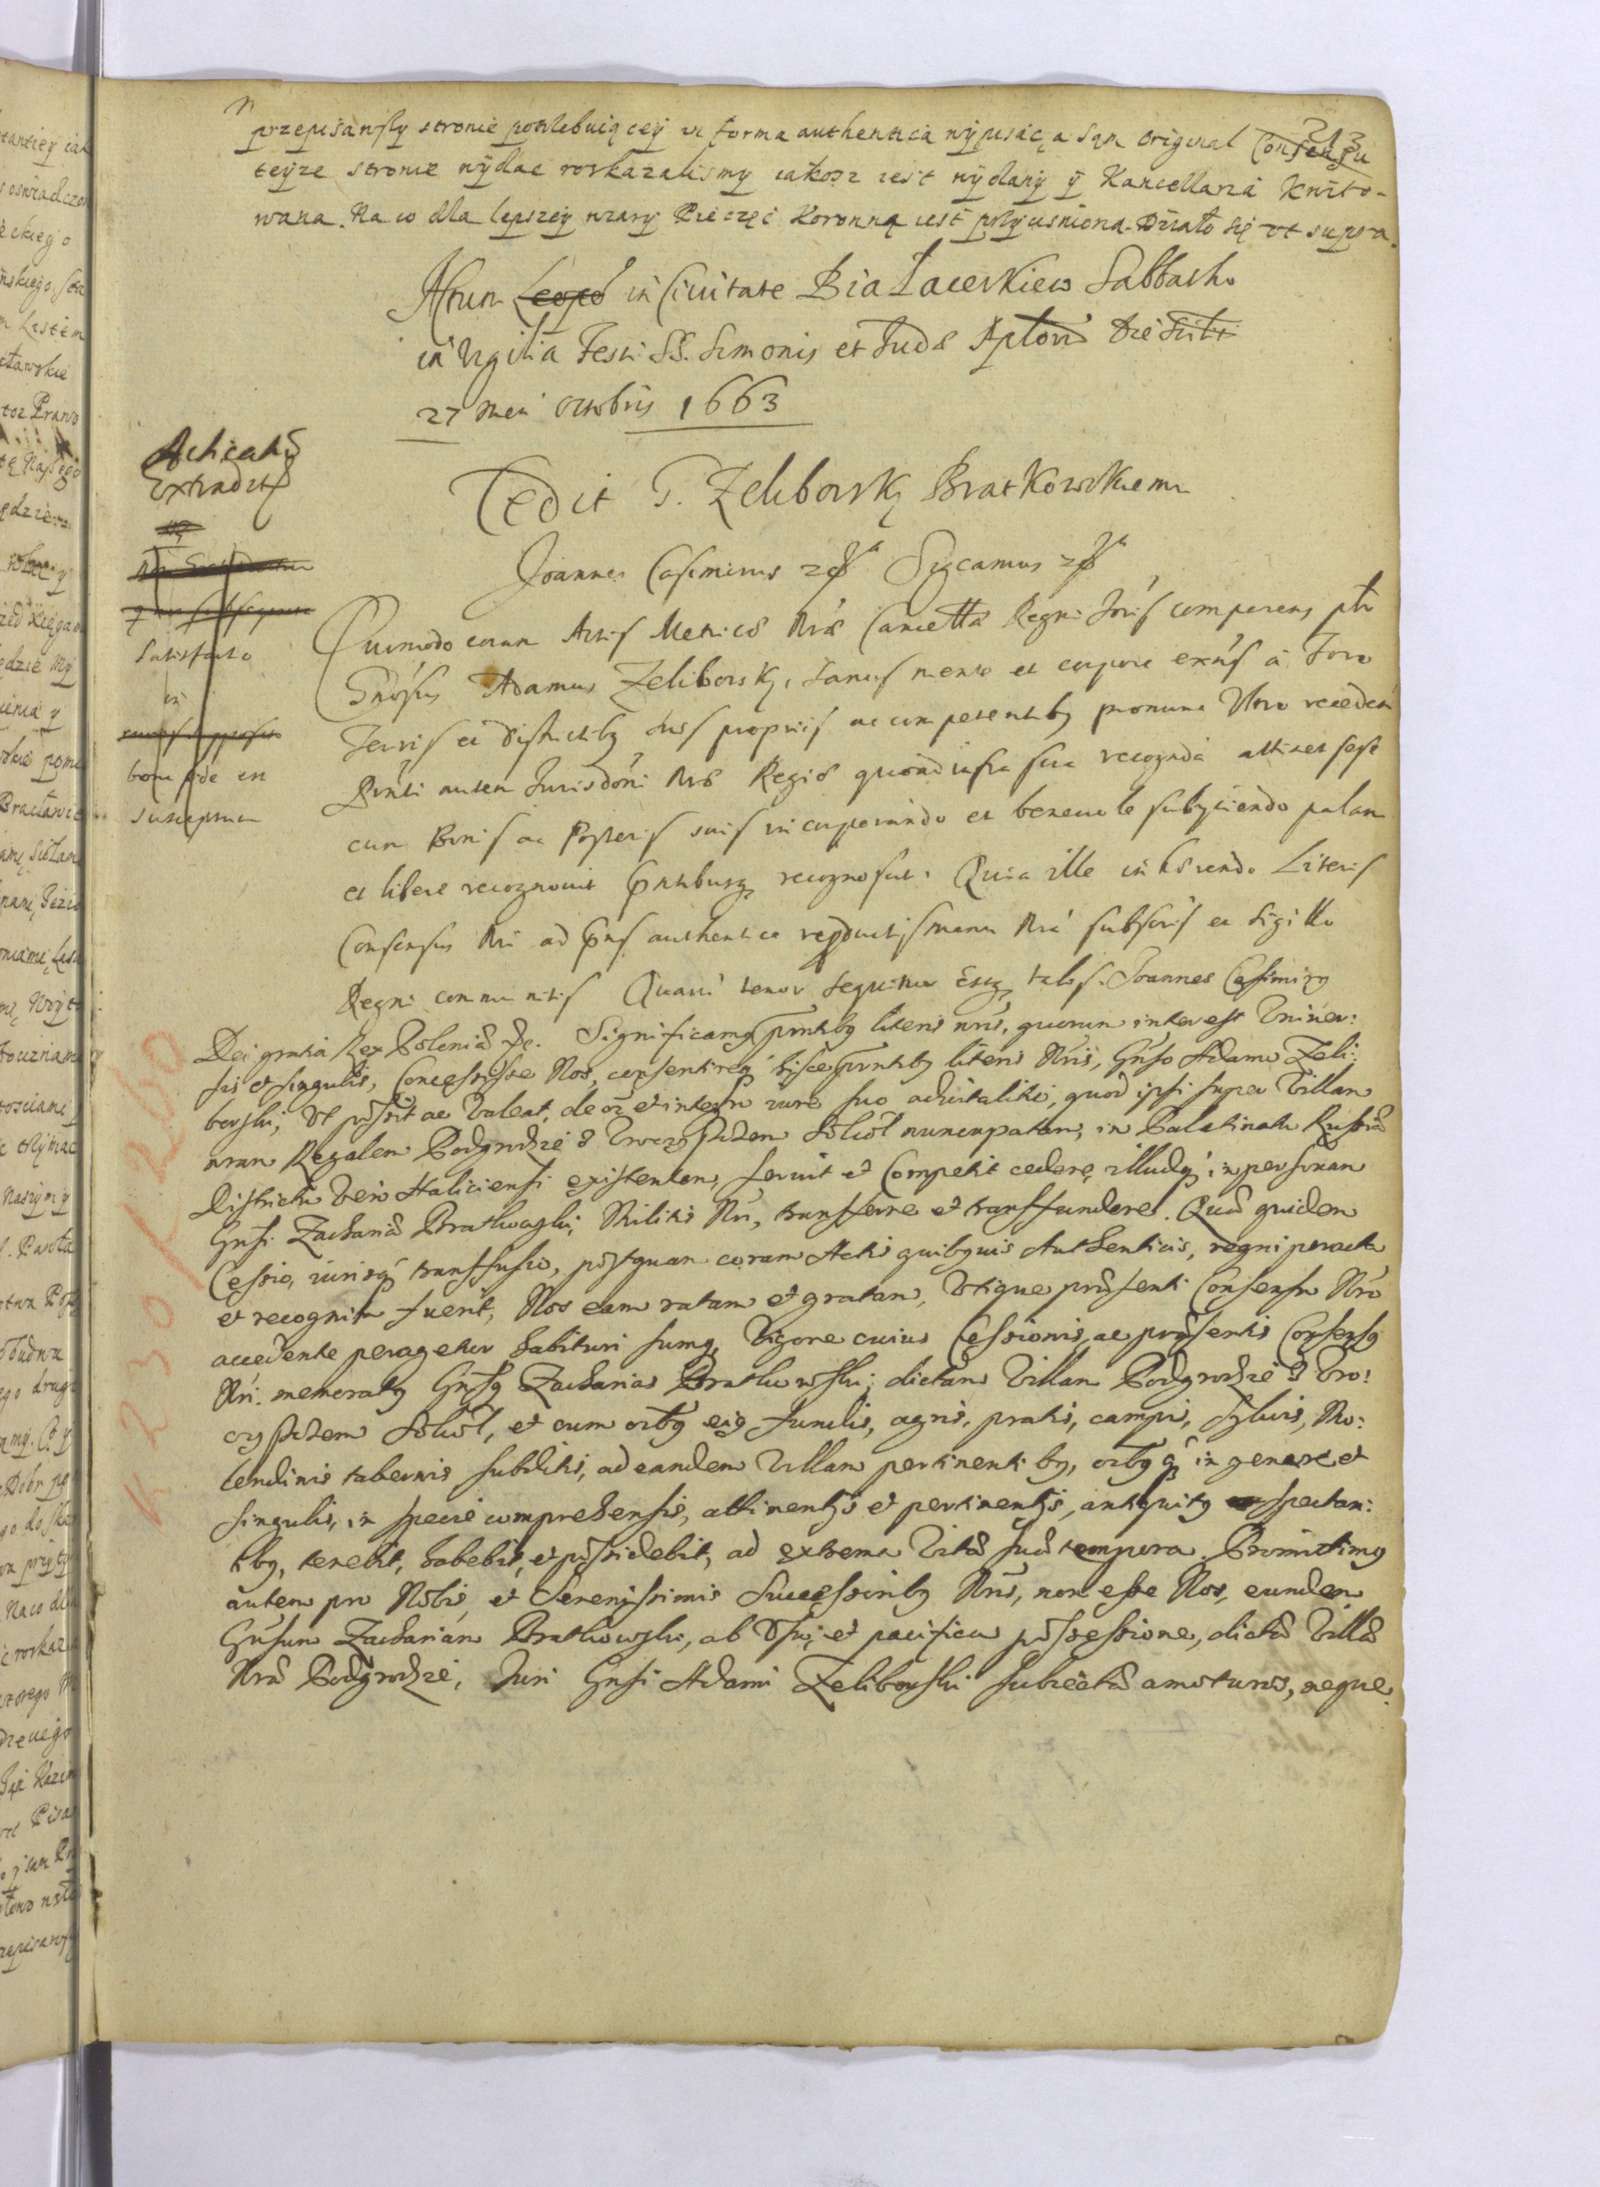 213
przepisanszy stronie potrzebuiącey in forma authentica wypisac, a Sam Original Consensu
teyze stronie wydac roskazalismy iakosz iest wydany y Kancellaria kwito-
wana. Na co dla lepszey wiary Pieczęć Koronna iest przycisniona. Działo się ut supra.
Actum Leopo in Civitate Białacerkiew Sabbatho
in Vigilia Festi SS. Simonis et Judæ Aplorū die
27 Men Octobris 1663
Acticatū
Extradit
Cedit G. Zeliborsky Bratkowskiemu
Joannes Casimirus Sigcamus
Satisfacto
in
bona fide in
susceptum
Quomodo coram Actis Metrices Nræ Cancellæ Regni Joris comparens plr
Gnosus Adamus Zeliborsky, Sanus mente et corpore exns a Foro
Terris et districtibq suis propriis ac competentibq pronunc Vero recedens
Prnti autem Jurisdōni Nræ Regiæ quoad infra scta recognda attinet sese
cum Bonis ac Posteris suis incorporando et benevole subyciendo palam
et libere recognovit Prntibusq recognoscit. Quia ille inhærendo Literis
Consensus Nri ad Prns authentice reproductis manu Nra subscris et Sigillo
Regni communitis Quarū tenor sequitur Estq talis. Joannes Casimirq
Dei gratia Rex Poloniæ &c. Significamq prntibq literis nris, quorum interest Vniver:
sis et singulis, Concessisse Nos, consentireq hisce prntibq literis Nris, Gnso Adamo Zeli:
borski, Vt possit ac valeat, de oī et integro iure suo advitalitio, quod ipsi super Villam
nram Regalem Podgrodzie nuncupatam, in Palatinatu Russiæ
Districtu vero Haliciensi existentem, servit et Competit cedere, illudq in personam
Gnsi Zachariæ Bratkowski, Militis Nri, transferre et transfundere. Quæ quidem
Cessio, iurisq transfusio, postquam coram Actis quibusvis Authenticis, regni peracta
et recognita fuerit, Nos eam ratam et gratam, Vtique præsenti Consensu Nro
accedente peragetur habituri sumq, Vigore cuius Cessionis, ac præsentis Consensq
Nri. memoratq Gnsq Zacharias Bratkowski; dictam Villam Podgrodzie
et cum oibq eiq fundis, agris, pratis, campis, Sylvis, Mo:
lendinis tabernis subditis, ad eandem Villam pertinentibq, oibq q in genere et
singulis, in specie comprehensis, attinentijs et pertinentijs, antiquitq spectan:
tibq, tenebit, habebit, et possidebit, ad extrema Vitæ suæ tempora. Promittimq
autem pro Nobis, et Serenissimis Successoribq Nris, non esse Nos, eundem
Gnsum Zachariam Bratkowski, ab Vsu, et pacifica possessione, dictæ Villæ
Nræ Podgrodzie, Juri Gnsi Adami Zeliborski subiectæ amoturos, neque